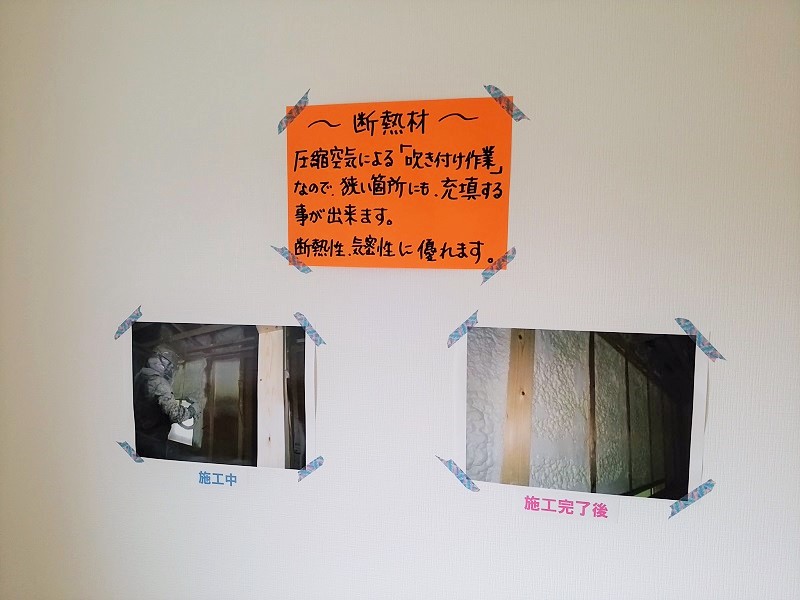 ～ 断熱材 ～
圧縮空気による「吹き付け作業」
なので、狭い箇所にも、充填する
事が出来ます。
断熱性、気密性に優れます。
施工中
施工完了後